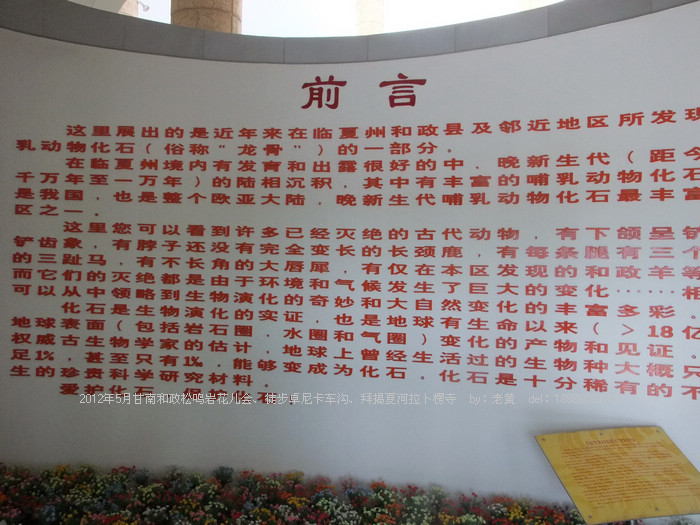 前言
这里展出的是近年来在临夏州和政县及邻近地区所发现
乳动物化石（俗称"龙骨"）的一部分．
在临夏州境内有发育和出露很好的中、晚新生代（距今
千万年至一万年）的陆相沉积，其中有丰富的哺乳动物化石
是我国，也是整个欧亚大陆，晚新生代哺乳动物化石最丰富
区之一．
这里您可以看到许多已经灭绝的古代动物，有下颌呈铲
铲齿象，有脖子还没有完全变长的长颈鹿，有每条腿有三个
的三趾马，有不长角的大唇犀，有仅在本区发现的和政羊等
而它们的灭绝都是由于环境和气候发生了巨大的变化……相
可以从中领略到生物演化的奇妙和大自然变化的丰富多彩．
化石是生物演化的实证，也是地球有生命以来（>18亿
地球表面（包括岩石圈、水圈和气圈）变化的产物和见证．
权威古生物学家的估计，地球上曾经生活过的生物种大概只
足1%，甚至只有1‰，能够变成为化石．化石是十分稀有的不
生的珍贵科学研究材料．
爱护化石
2012年5月甘南和政松鸣岩花儿会、徒步卓尼卡车沟、拜揭夏河拉卜楞寺 by：老黄